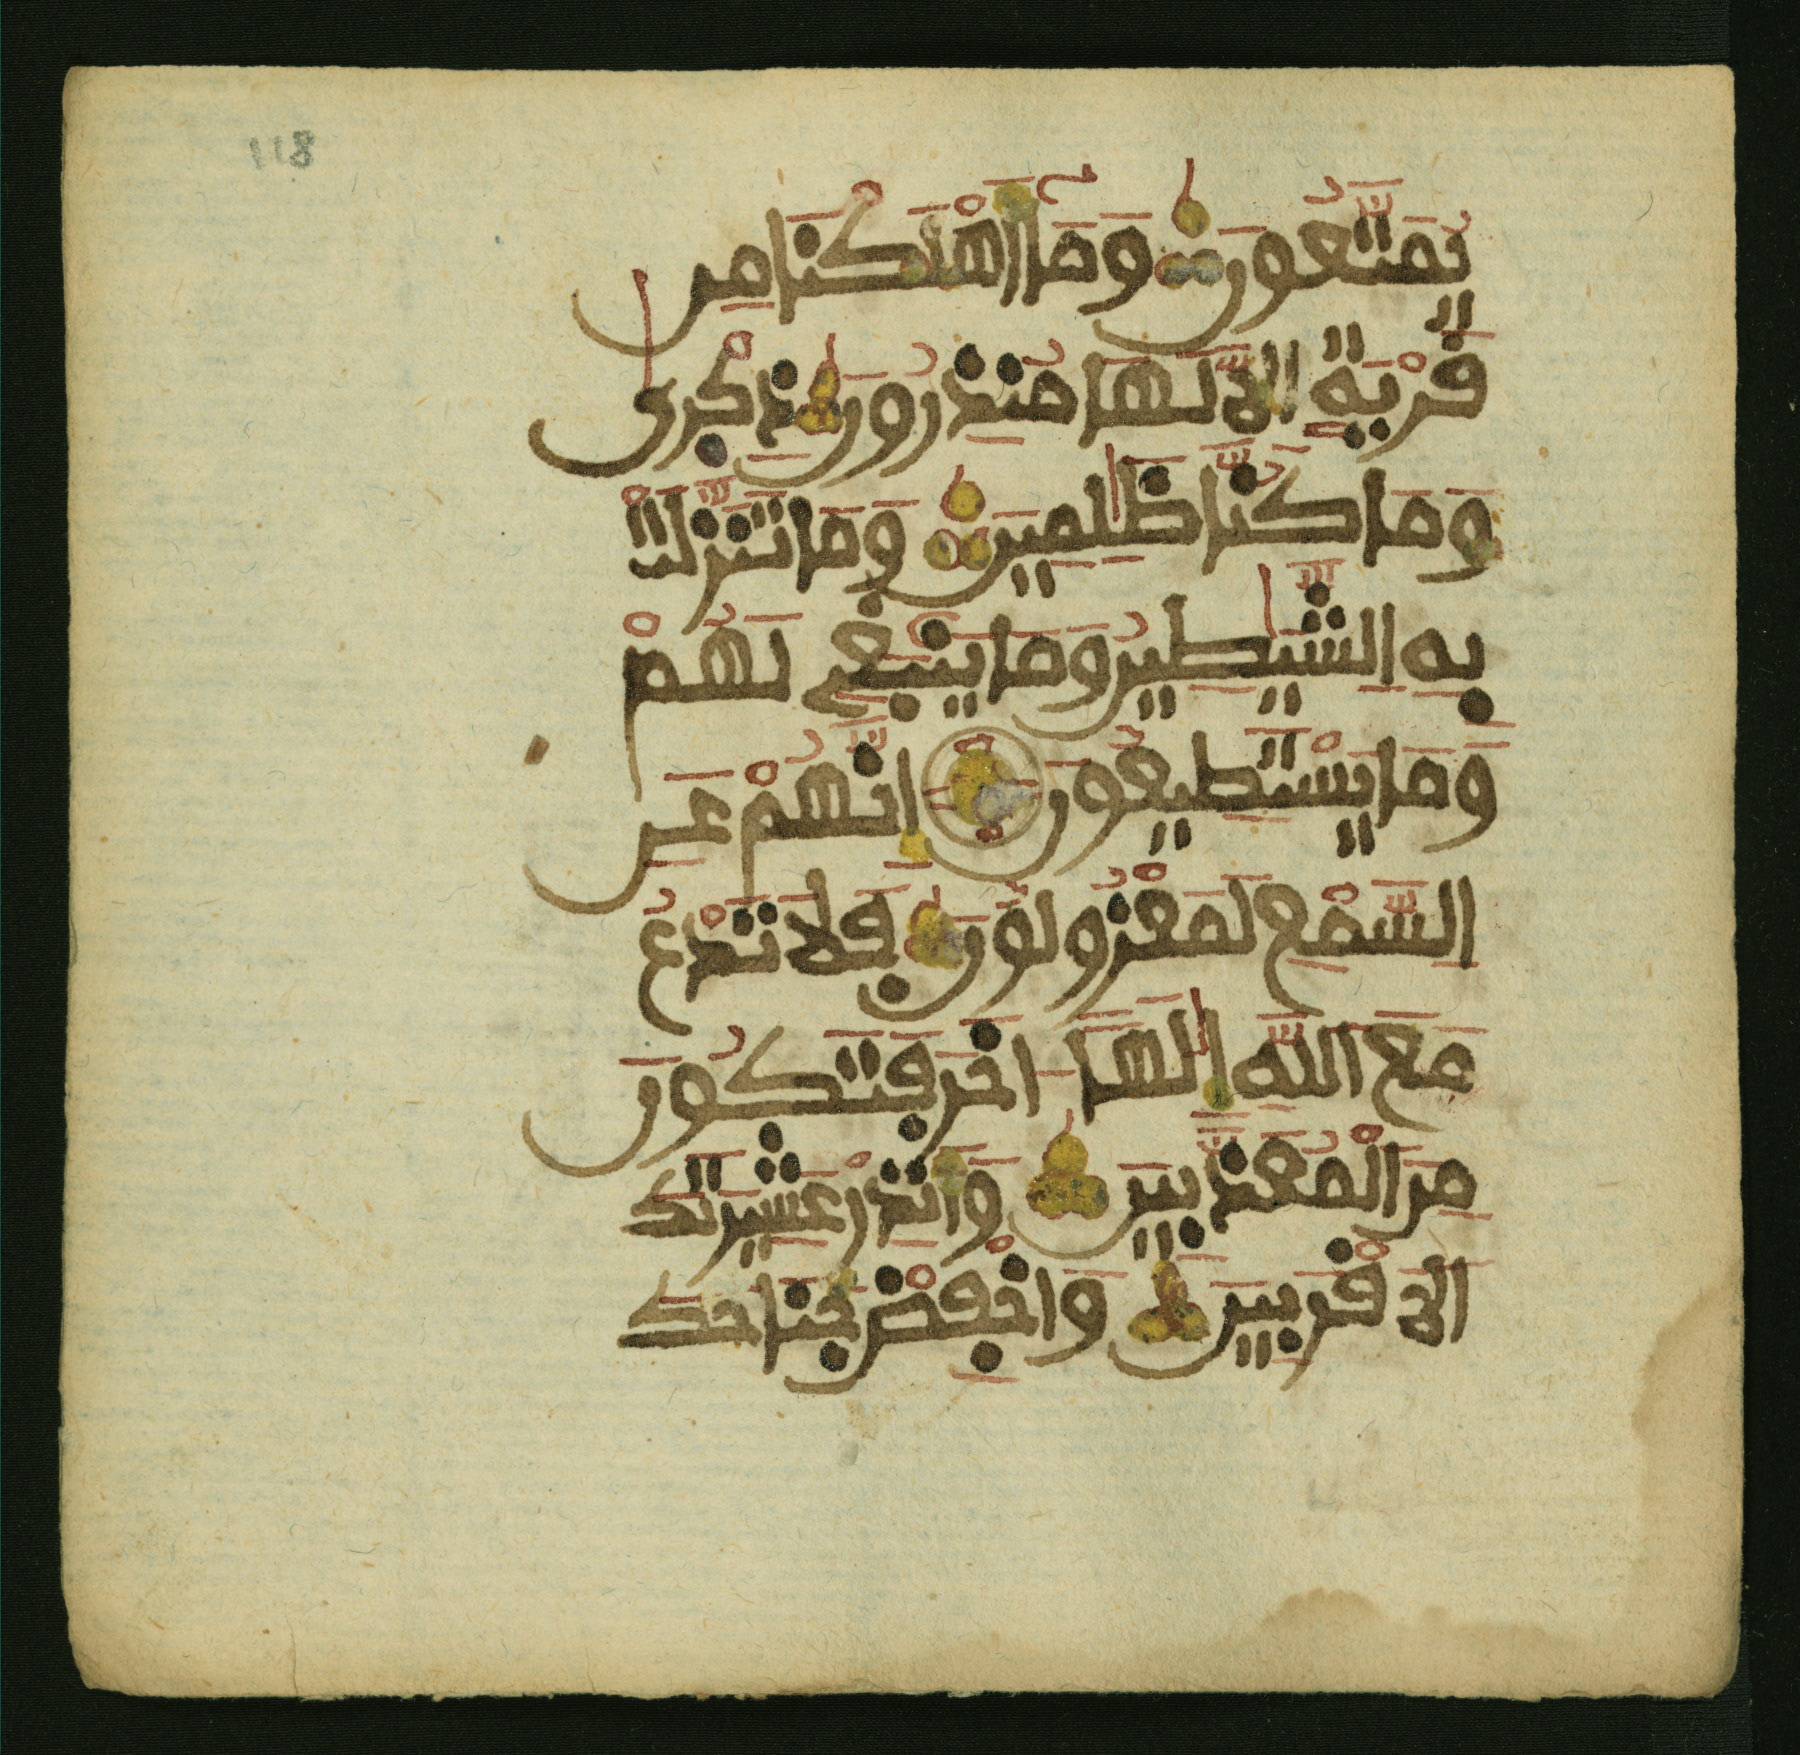 118
يُمَتَّعُونَ وَمَا أَهْلَكْنَا مِن
قَرْيَةٍ اِلَّا لَهَا مُنذِرُونَ ذِكْرٰى
وَمَا كُنَّا ظَٰلِمِينَ وَمَا تَنَزَّلَتْ
بِهِ الشَّيَٰطِينُ وَمَا يَنۢبَغِي لَهُمْ
وَمَا يَسْتَطِيعُونَ اِنَّهُمْ عَنِ
السَّمْعِ لَمَعْزُولُونَ فَلَا تَدْعُ
مَعَ اللَّهِ إِلَٰهًا اخَرَ فَتَكُونَ
مِنَ الْمُعَذَّبِينَ وَأَنذِرْ عَشِيرَتَكَ
الَاقْرَبِينَ وَاخْفِضْ جَنَاحَكَ